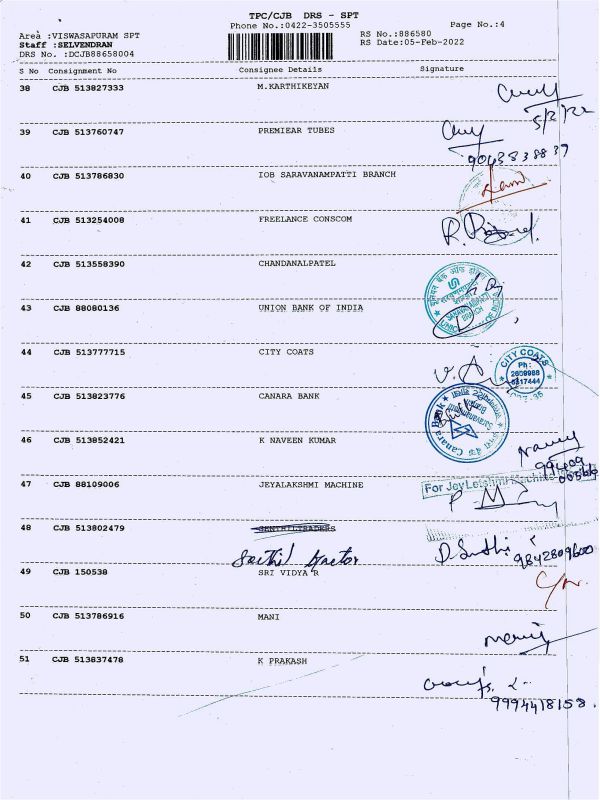 TPC/CJB DRS - SPT
Phone No.:0422-3505555
Page No.:4
Area :VISWASAPURAM SPT
RS No.:886580
Staff :SELVENDRAN
RS Date:05-Feb-2022
DRS No. :DCJB88658004
S No Consignment No Consignee Details Signature
38 CJB 513827333 M.KARTHIKEYAN
5/2/22
39 CJB 513760747 PREMIEAR TUBES
9043838837
40 CJB 513786830 IOB SARAVANAMPATTI BRANCH
41 CJB 513254008 FREELANCE CONSCOM
42 CJB 513558390 CHANDANALPATEL
43 CJB 88080136 UNION BANK OF INDIA
44 CJB 513777715 CITY COATS
CITY COATS
Ph :
45 CJB 513823776 CANARA BANK
Canara Bank
46 CJB 513852421 K NAVEEN KUMAR
47 CJB 88109006 JEYALAKSHMI MACHINE
For JeyLakshmi Machine
48 CJB 513802479 SENTHILTRADERS
9842809600
49 CJB 150538 SRI VIDYA R
50 CJB 513786916 MANI
51 CJB 513837478 K PRAKASH
9994418158.